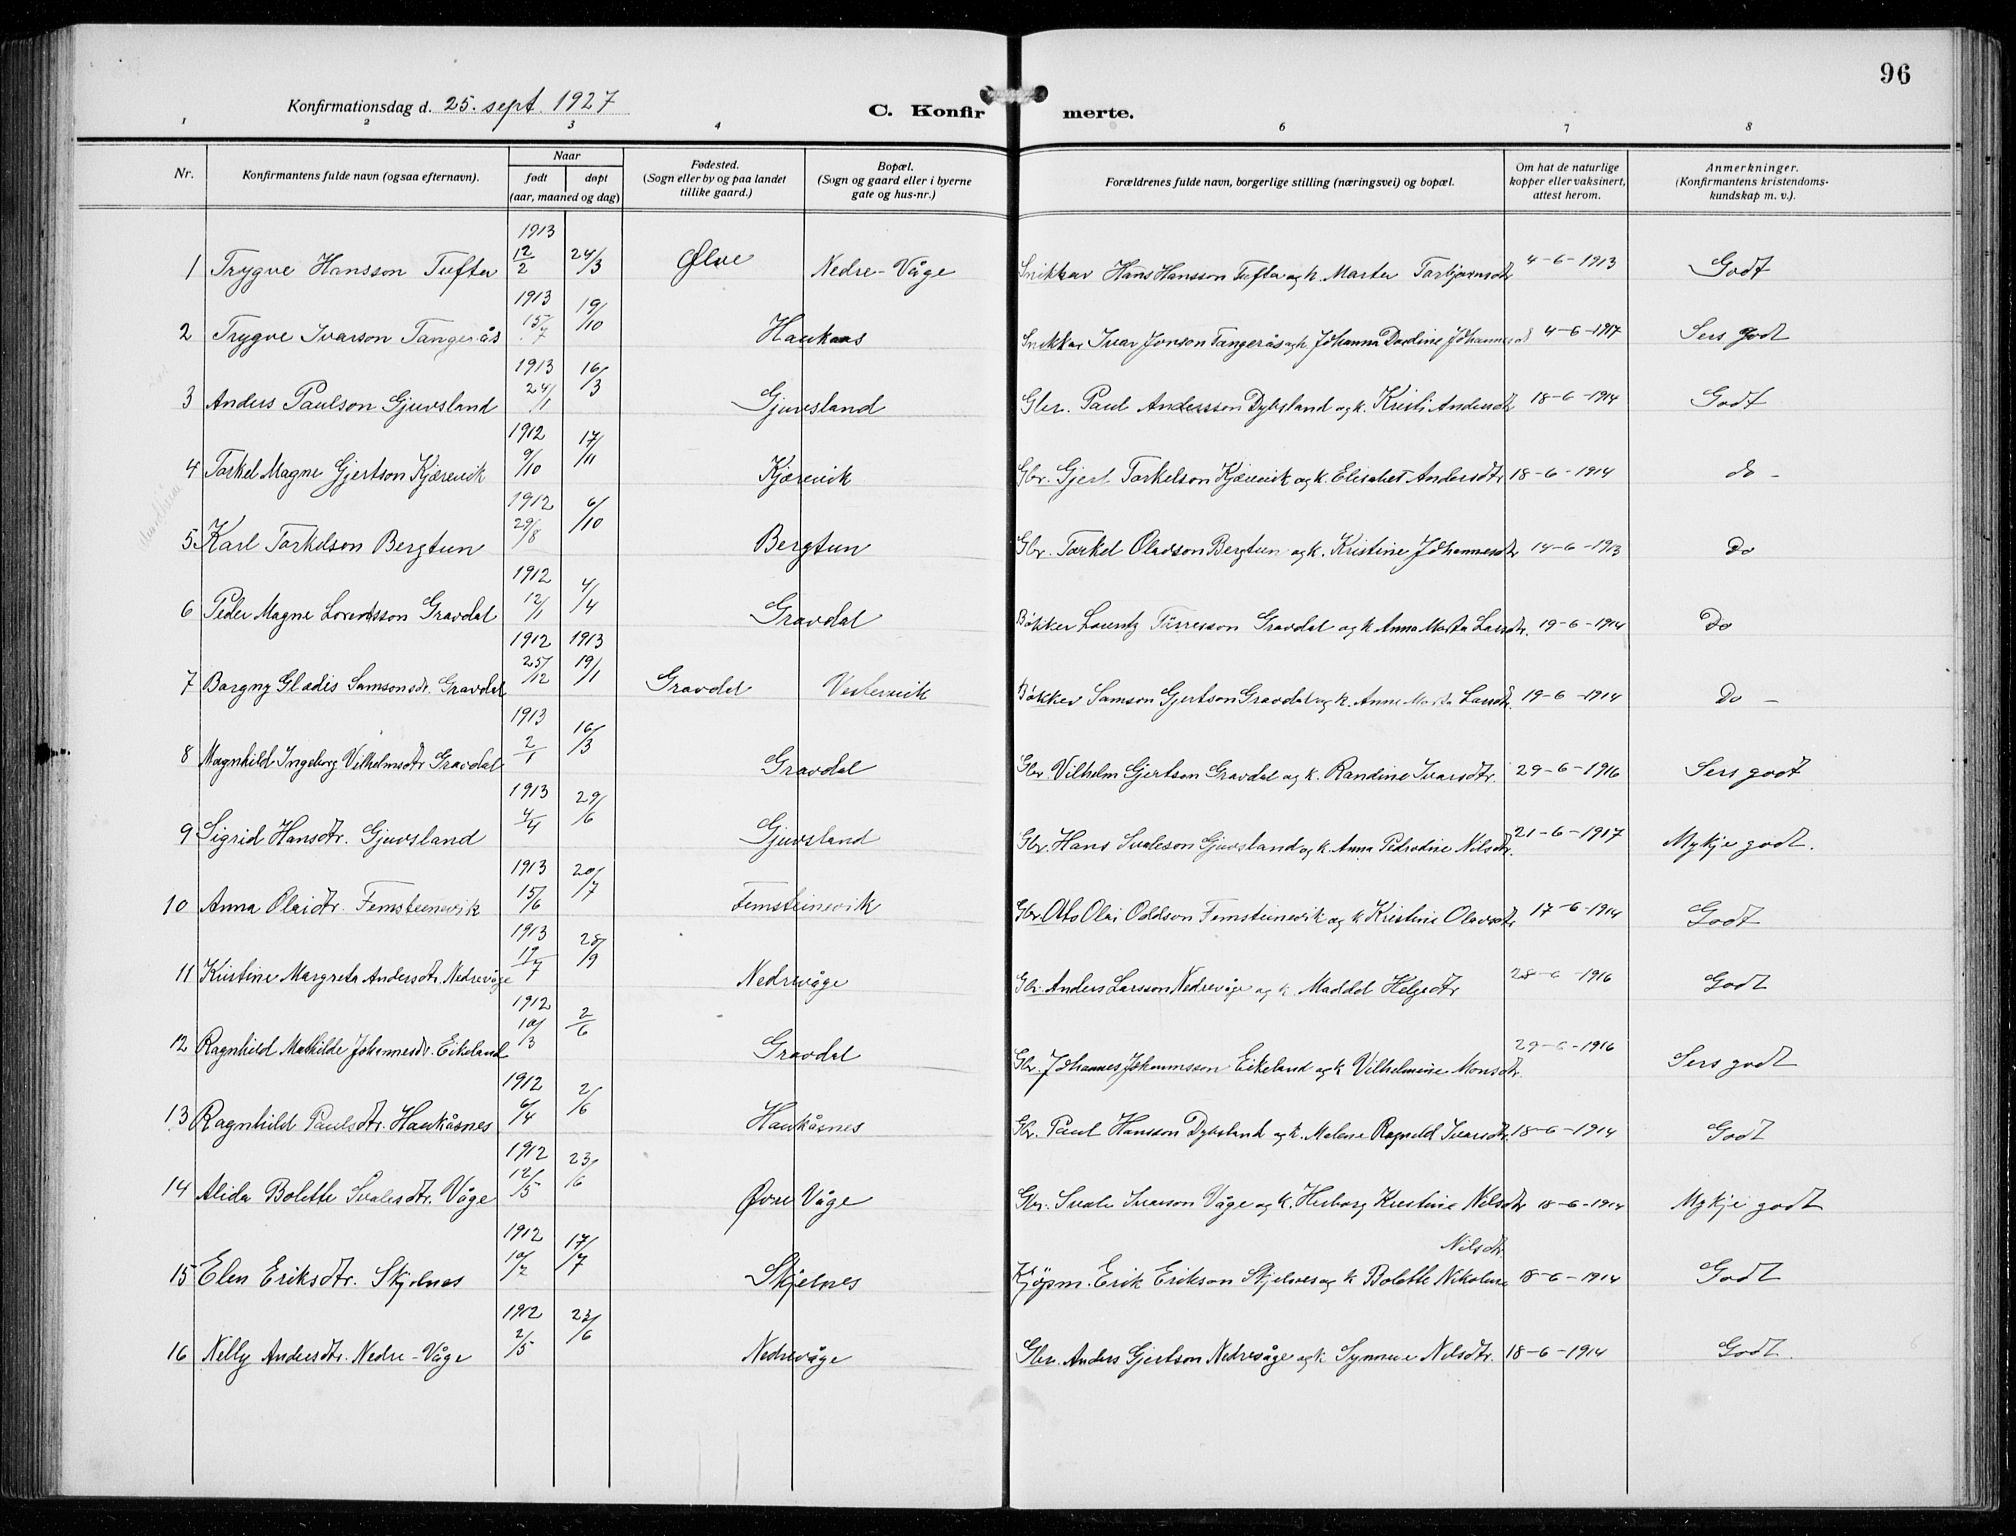 96
Konfirmationsdag d. 25. sept. 1927
C. Konfirmerte.
1 2 3 4 6 7 8
Nr.
Konfirmantens fulde navn (ogsaa efternavn).
Naar
født døpt
(aar, maaned og dag)
Fødested.
(Sogn eller by og paa landet
tillike gaard.)
Bopæl.
(Sogn og gaard eller i byerne
gate og hus-nr.)
Forældrenes fulde navn, borgerlige stilling (næringsvei) og bopæl.
Om hat de naturlige
kopper eller vaksinert,
attest herom.
Anmerkninger.
(Konfirmantens kristendoms-
kundskap m. v.).
1 Trygve Hansson Tufter 1913 12/2 24/3 Ølve Nedre-Våge Snikkar Hans Hansson Tufter og k. Marta Torbjørnsdtr 4-6-1913 Godt
2 Trygve Ivarson Tangerås 1913 15/7 19/10 Haukaas Snikkar Ivar Jonson Tangerås og k. Johanna Dordine 4-6-1917 Sers godt
3 Anders Paulson Gjuvsland 1913 24/1 16/3 Gjuvsland Gbr. Paul Andersson Dybsland og k. Kristi Andersdtr 18-6-1914 Godt
4 Torkel Magne Gjertson Kjærevik 1912 9/10 17/11 Kjærevik Gbr. Gjert Torkelson Kjærevik og k. Elisabet Andersdtr 18-6-1914 do -
5 Karl Torkelson Bergtun 1912 29/8 6/10 Bergtun Gbr. Torkel Oladson Bergtun og k. Kristine Johannesdtr 14-6-1913 Do
6 Peder Magne Lorentsson Gravdal 1912 12/1 4/4 Gravdal Bøkker Lorentz Tørresson Gravdal og k. Anna Marta Larsdtr. 19-6-1914 Do
7 Borgny Gladis Samsonsdr. Gravdal 1912 25/12 1913 19/1 Gravdal Vestervik Bøkker Samson Gjertson Gravdal og k. Anna Marta Larsdtr. 19-6-1914 Do -
8 Magnhild Ingeborg Vilhelmsdtr Gravdal 1913 2/1 16/3 Gravdal Gbr. Vilhelm Gjertson Gravdal og k. Randine Ivarsdtr. 29-6-1916 Sers godt
9 Sigrid Hansdtr. Gjuvsland 1913 4/4 29/6 Gjuvsland Gbr. Hans Svaleson Gjuvsland og k. Anna Pedrodine Nilsdtr. 21-6-1917 Mykje godt.
10 Anna Olaidtr. Femsteinevik 1913 15/6 20/7 Femsteinevik Gbr. Olai Oddson Femsteinevik og k Kristine Olavsdtr 17-6-1914 Godt
11 Kristine Margreta Andersdtr. Nedrevåge 1913 19/7 28/9 Nedrevåge Gbr. Anders Larsson Nedrevåge og k. Maddel Helgedtr 28-6-1916 Godt
12 Ragnhild Mathilde Johannesdr. Eikeland 1912 10/3 2/6 Gravdal Gbr. Johannes Johannesson Eikeland og k Vilhelmine Monsdtr. 29-6-1916 Sers godt
13 Ragnhild Paulsdtr. Haukåsnes 1912 6/4 2/6 Haukåsnes Gbr. Paul Hansson Dybsland og k. Malene Ragnild Ivarsdtr. 18-6-1914 Godt
14 Alida Bolette Svalesdtr. Våge 1912 12/5 23/6 Øvre Våge Gbr. Svale Ivarson Våge og k. Herborg Kristine Nilsdtr 18-6-1914 Mykje godt
15 Elen Eriksdtr. Skjelnes 1912 10/2 17/7 Skjelnes Kjøpm. Erik Erikson Skjelnes og k Bolette Nikoline Nilsdtr. 18-6-1914 Godt
16 Nelly Andersdtr. Nedre-Våge 1912 2/5 23/6 Nedrevåge Gbr. Anders Gjertson Nedrevåge og k Synneve Nilsdtr. 18-6-1914 Godt.